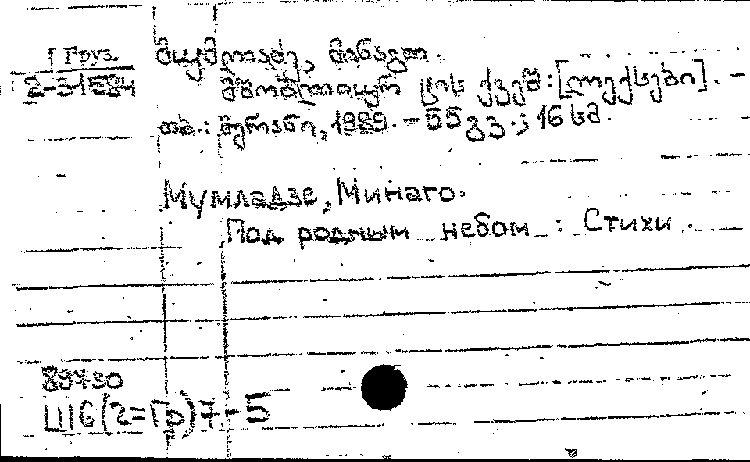 Груз.
2-31584
მუმლაძე, მინაგო.
მშობლიურ ცის ქვეშ : [ლექსები]. –
თბ. : მერანი, 1989. – 55 გვ. ; 16 სმ.
Мумладзе, Минаго.
Под родным небом : Стихи.
89730
Ш6(2=Гр)7-5